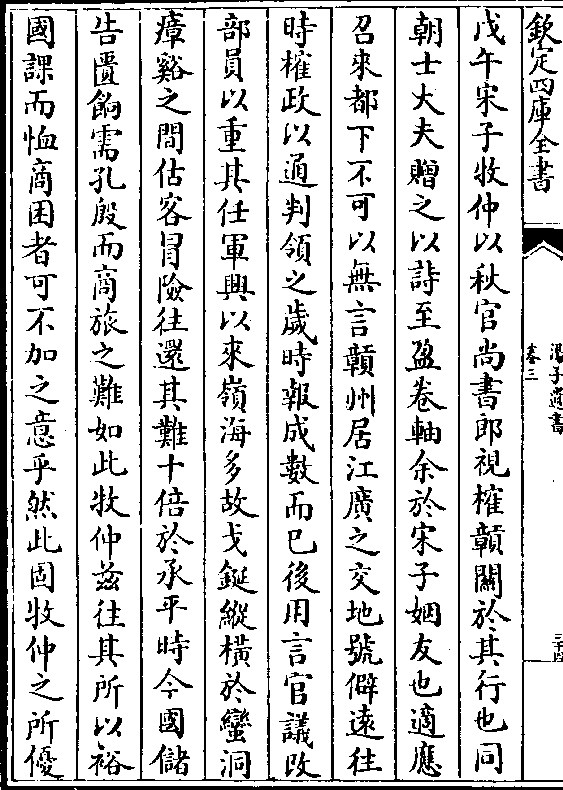 欽定四庫全書
卷三
三十四
戊午宋子牧仲以秋官尚書郎視榷贛關於其行也同
朝士大夫贈之以詩至盈卷軸余於宋子姻友也適應
召來都下不可以無言贛州居江廣之交地號僻遠往
時榷政以通判領之歲時報成數而已後用言官議改
部員以重其任軍興以來嶺海多故戈鋋縱橫於蠻洞
瘴谿之間估客冒險往還其難十倍於承平時今國儲
告匱餉需孔殷而商旅之難如此牧仲茲往其所以裕
國課而恤商困者可不加之意乎然此固牧仲之所優